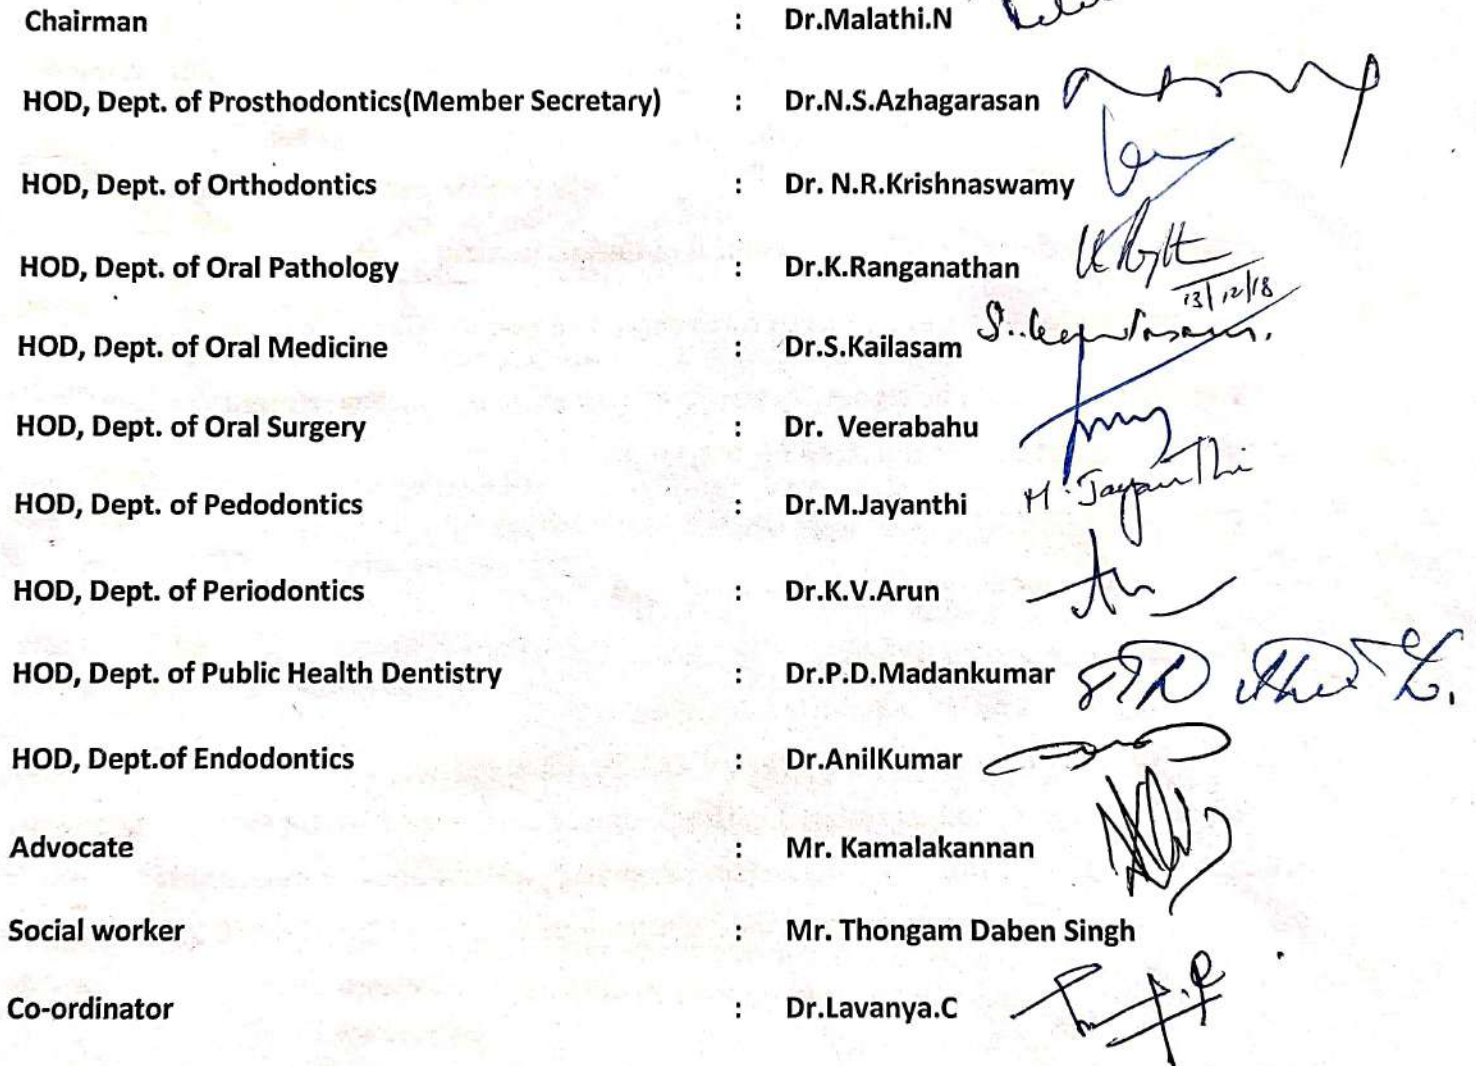 Chairman : Dr.Malathi.N
HOD, Dept. of Prosthodontics(Member Secretary) : Dr.N.S.Azhagarasan
HOD, Dept. of Orthodontics : Dr. N.R.Krishnaswamy
HOD, Dept. of Oral Pathology : Dr.K.Ranganathan
13/12/18
HOD, Dept. of Oral Medicine : Dr.S.Kailasam
HOD, Dept. of Oral Surgery : Dr. Veerabahu
HOD, Dept. of Pedodontics : Dr.M.Jayanthi M. Jayanthi
HOD, Dept. of Periodontics : Dr.K.V.Arun
HOD, Dept. of Public Health Dentistry : Dr.P.D.Madankumar
HOD, Dept.of Endodontics : Dr.AnilKumar
Advocate : Mr. Kamalakannan
Social worker : Mr. Thongam Daben Singh
Co-ordinator : Dr.Lavanya.C